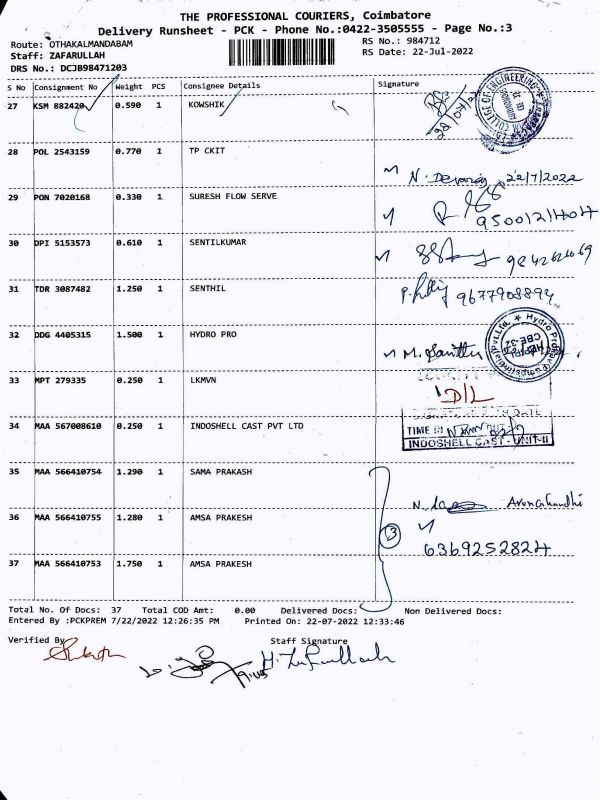 THE PROFESSIONAL COURIERS, Coimbatore
Delivery Runsheet - PCK - Phone No.:0422-3505555 - Page No.:3
Route: OTHAKALMANDABAM
RS No.: 984712
Staff: ZAFARULLAH
RS Date: 22-Jul-2022
DRS No.: DCJB98471203
S No Consignment No Weight PCS Consignee Details Signature
27 KSM 882420 0.590 1 KOWSHIK
COLLEGE OF ENGINEERING
28 POL 2543159 0.770 1 TP CKIT
22/7/2022
29 PON 7020168 0.330 1 SURESH FLOW SERVE
30 DPI 5153573 0.610 1 SENTILKUMAR
31 TDR 3087482 1.250 1 SENTHIL
9677908894
32 DDG 4405315 1.500 1 HYDRO PRO
33 MPT 279335 0.250 1 LKMVN
D/L
34 MAA 567008610 0.250 1 INDOSHELL CAST PVT LTD
TIME IN
INDOSHELL CAST - UNIT-II
35 MAA 566410754 1.290 1 SAMA PRAKASH
36 MAA 566410755 1.280 1 AMSA PRAKESH
3
6369252824
37 MAA 566410753 1.750 1 AMSA PRAKESH
Total No. Of Docs: 37 Total COD Amt: 0.00 Delivered Docs: Non Delivered Docs:
Entered By :PCKPREM 7/22/2022 12:26:35 PM Printed On: 22-07-2022 12:33:46
Verified By
Staff Signature